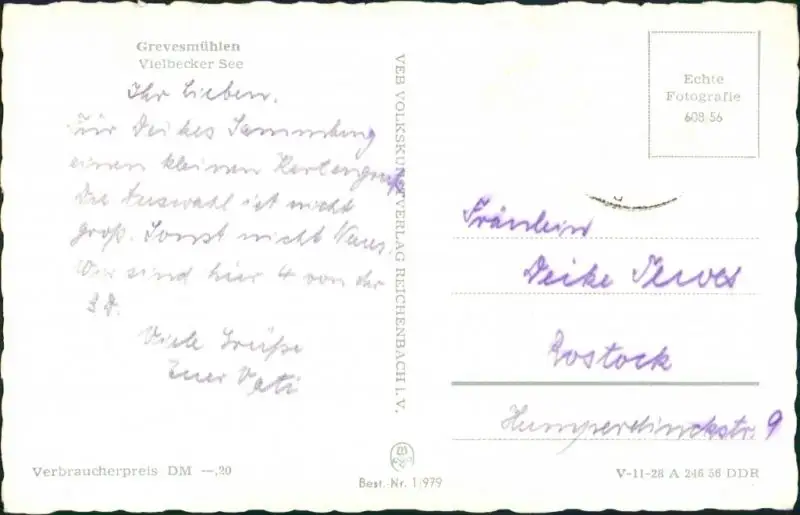 Grevesmühlen
Vielbecker See
Ihr Lieben,
Für Deikes Sammlung
einen kleinen Kartengruß
Die Auswahl ist nicht
groß. Sonst nicht Neues.
Wir sind hier 4 von der
Viele Grüße
Euer Vati
Verbraucherpreis DM —,20
VEB VOLKSKUNSTVERLAG REICHENBACH i. V.
Best.-Nr. 1/979
Echte
Fotografie
608 56
Fräulein
Deike Tewes
Rostock
Humperdinckstr. 9
V-11-28 A 246 56 DDR